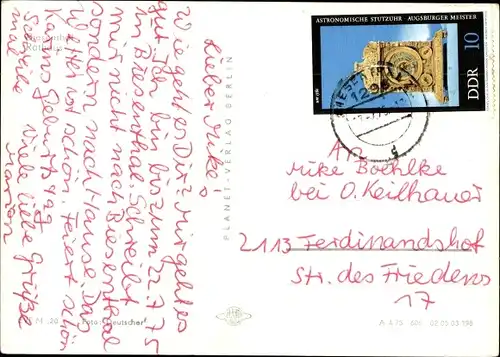 Biesenthal
Rathaus
Lieber Mike!
Wie geht es Dir? Mir geht es
gut. Ich bin bis zum 22.7.75
in Biesenthal. Schreibt
mir nicht nach Biesenthal
sondern nach Hause. Das
Wetter ist schön. Feiert schön
Katrins Geburtstag
Schreibe
mal
Viele liebe Grüße
Marion
PLANET-VERLAG BERLIN
ASTRONOMISCHE STUTZUHR · AUGSBURGER MEISTER
DDR 10
An
Mike Boehlke
bei O. Keilhauer
2113 Ferdinandshof
Str. des Friedens
17
Foto: Deutscher